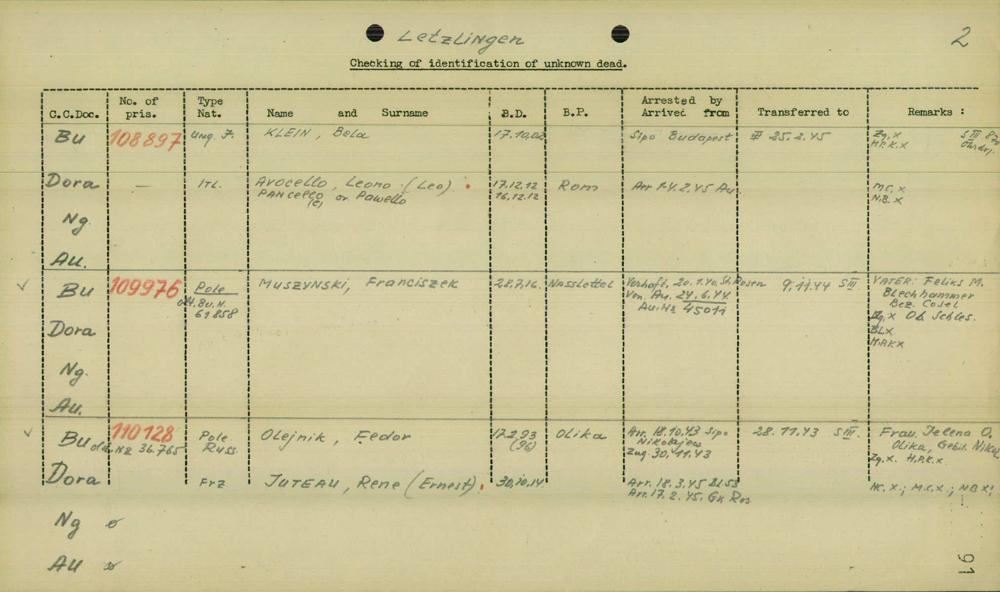 Letzlingen 2
Checking of identification of unknown dead.
C.C.Doc. No. of pris. Type Nat. Name and Surname B.D. B.P. Arrested by Arrived from Transferred to Remarks :
Bu 108897 Ung. KLEIN, Bela 17.10.02 Sipo Budapest 25.2.45 Zg. x
H.P.K.x
Dora - ITL. Avocello, Leono (Leo). 17.12.12 Rom Arr 14.2.45 Au M.C. x
PANCELLO or Pawello 16.12.12 N.B. x
(e)
Ng.
Au.
Bu 109976 Pole MUSZYNSKI, Franciszek 28.7.16. Nasslettel Verhaft. 20.1.40 St. Posen 9.11.44 S III VATER: Feliks M.
old. Bu. N. Von Au. 24.6.44 Blechhammer
61858 Au. Nr 45011 Bez. Cosel
Zg. x Ob. Schles.
Dora BLx
H.P.K x
Ng.
Au.
Bu 110128 Pole Olejnik, Fedor 17.2.93 Olika Arr. 18.10.43 Sipo 28.11.43 S III. Frau. Jelena O.
old. Nr 36.765 Russ. (96) Nikolajew Olika, Gebit.
Zug. 30.11.43 Zg. x. H.P.K.x
Dora Frz JUTEAU, Rene (Ernest). 30.10.14 Arr. 18.3.45 HC. x.; M.C.x.; N.B x;
Arr. 17.2.45. Gr Ros
Ng ø
Au ø
91